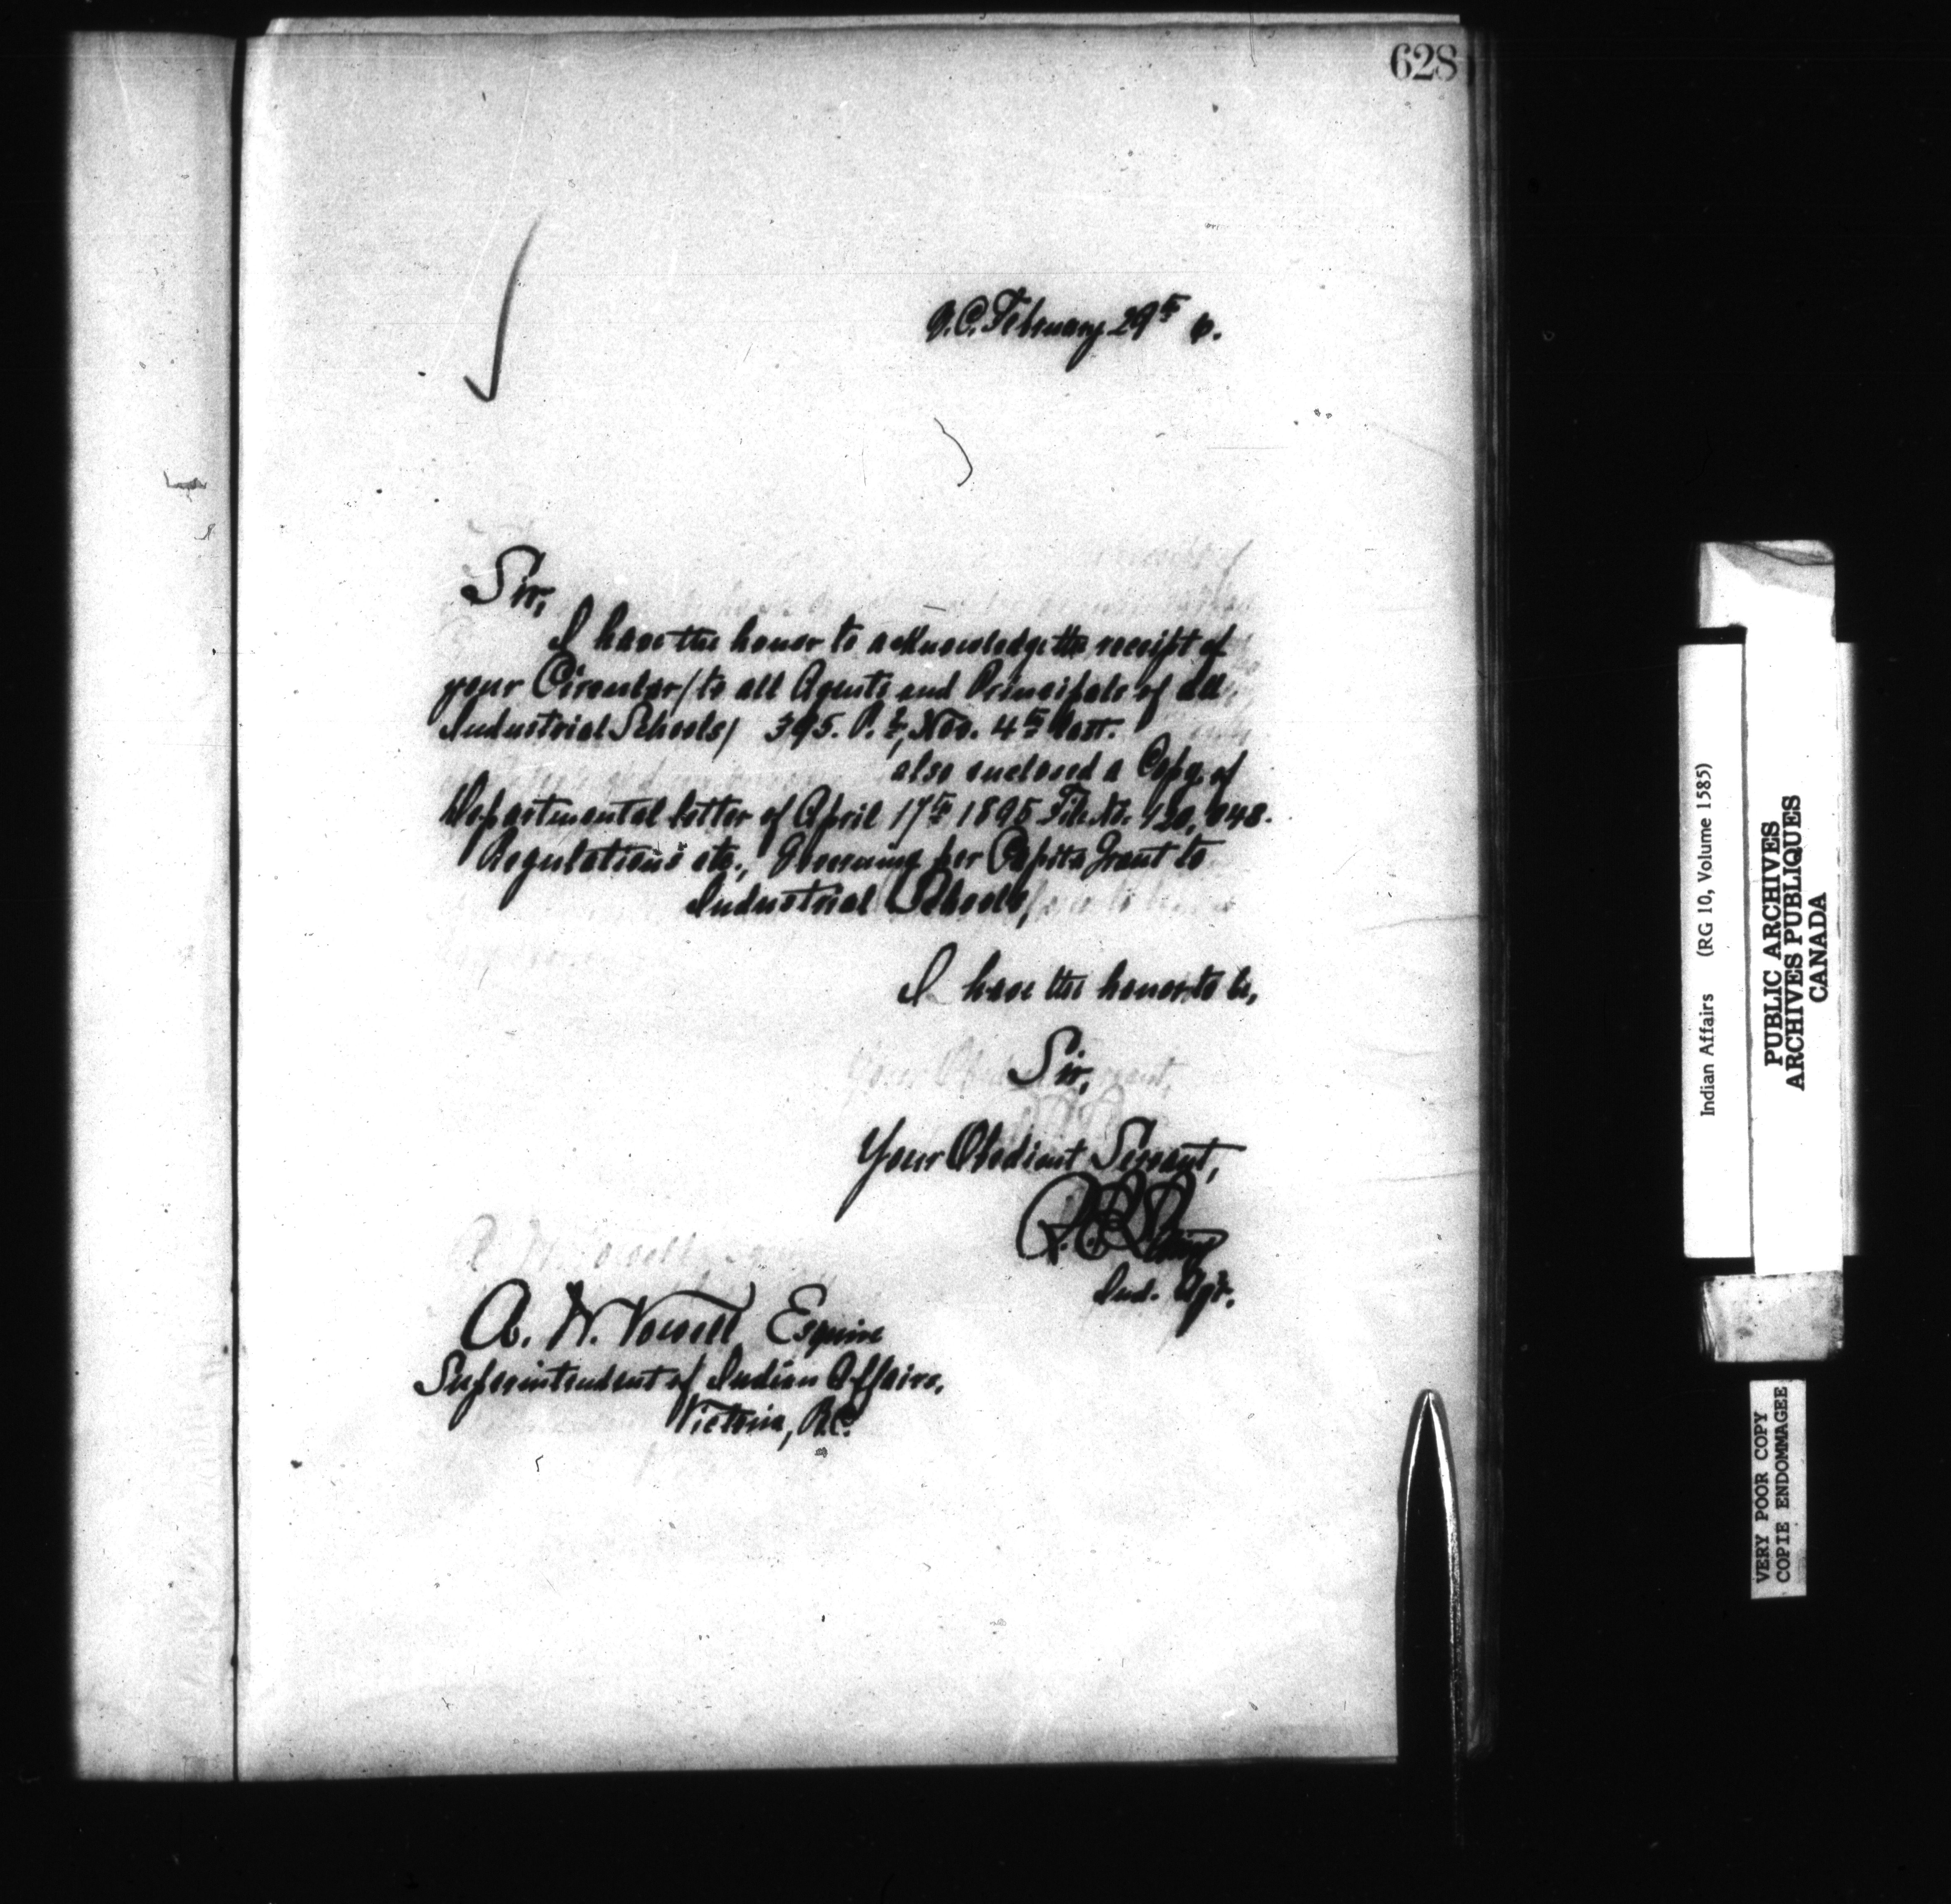 628
B.C. February 29th 6.
Sir,
I have the honor to acknowledge the receipt of
your Circular (to all Agents and Principals of all
Industrial Schools) 395. P. 2, Nov. 4th last.
also enclosed a Copy of
Departmental letter of April 17th 1895 File No. 120,048.
Regulations etc., Governing per Capita Grant to
Industrial Schools,
I have the honor to be,
Sir,
Your Obedient Servant,
Ind. Agt.
A. W. Vowell, Esquire
Superintendent of Indian Affairs,
Victoria, B.C.
Indian Affairs (RG 10, Volume 1585)
PUBLIC ARCHIVES
ARCHIVES PUBLIQUES
CANADA
VERY POOR COPY
COPIE ENDOMMAGEE